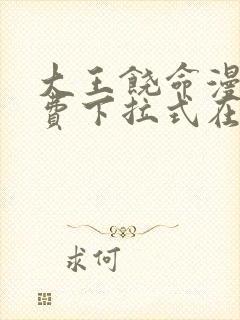 大王饶命漫
费下拉式在
求何